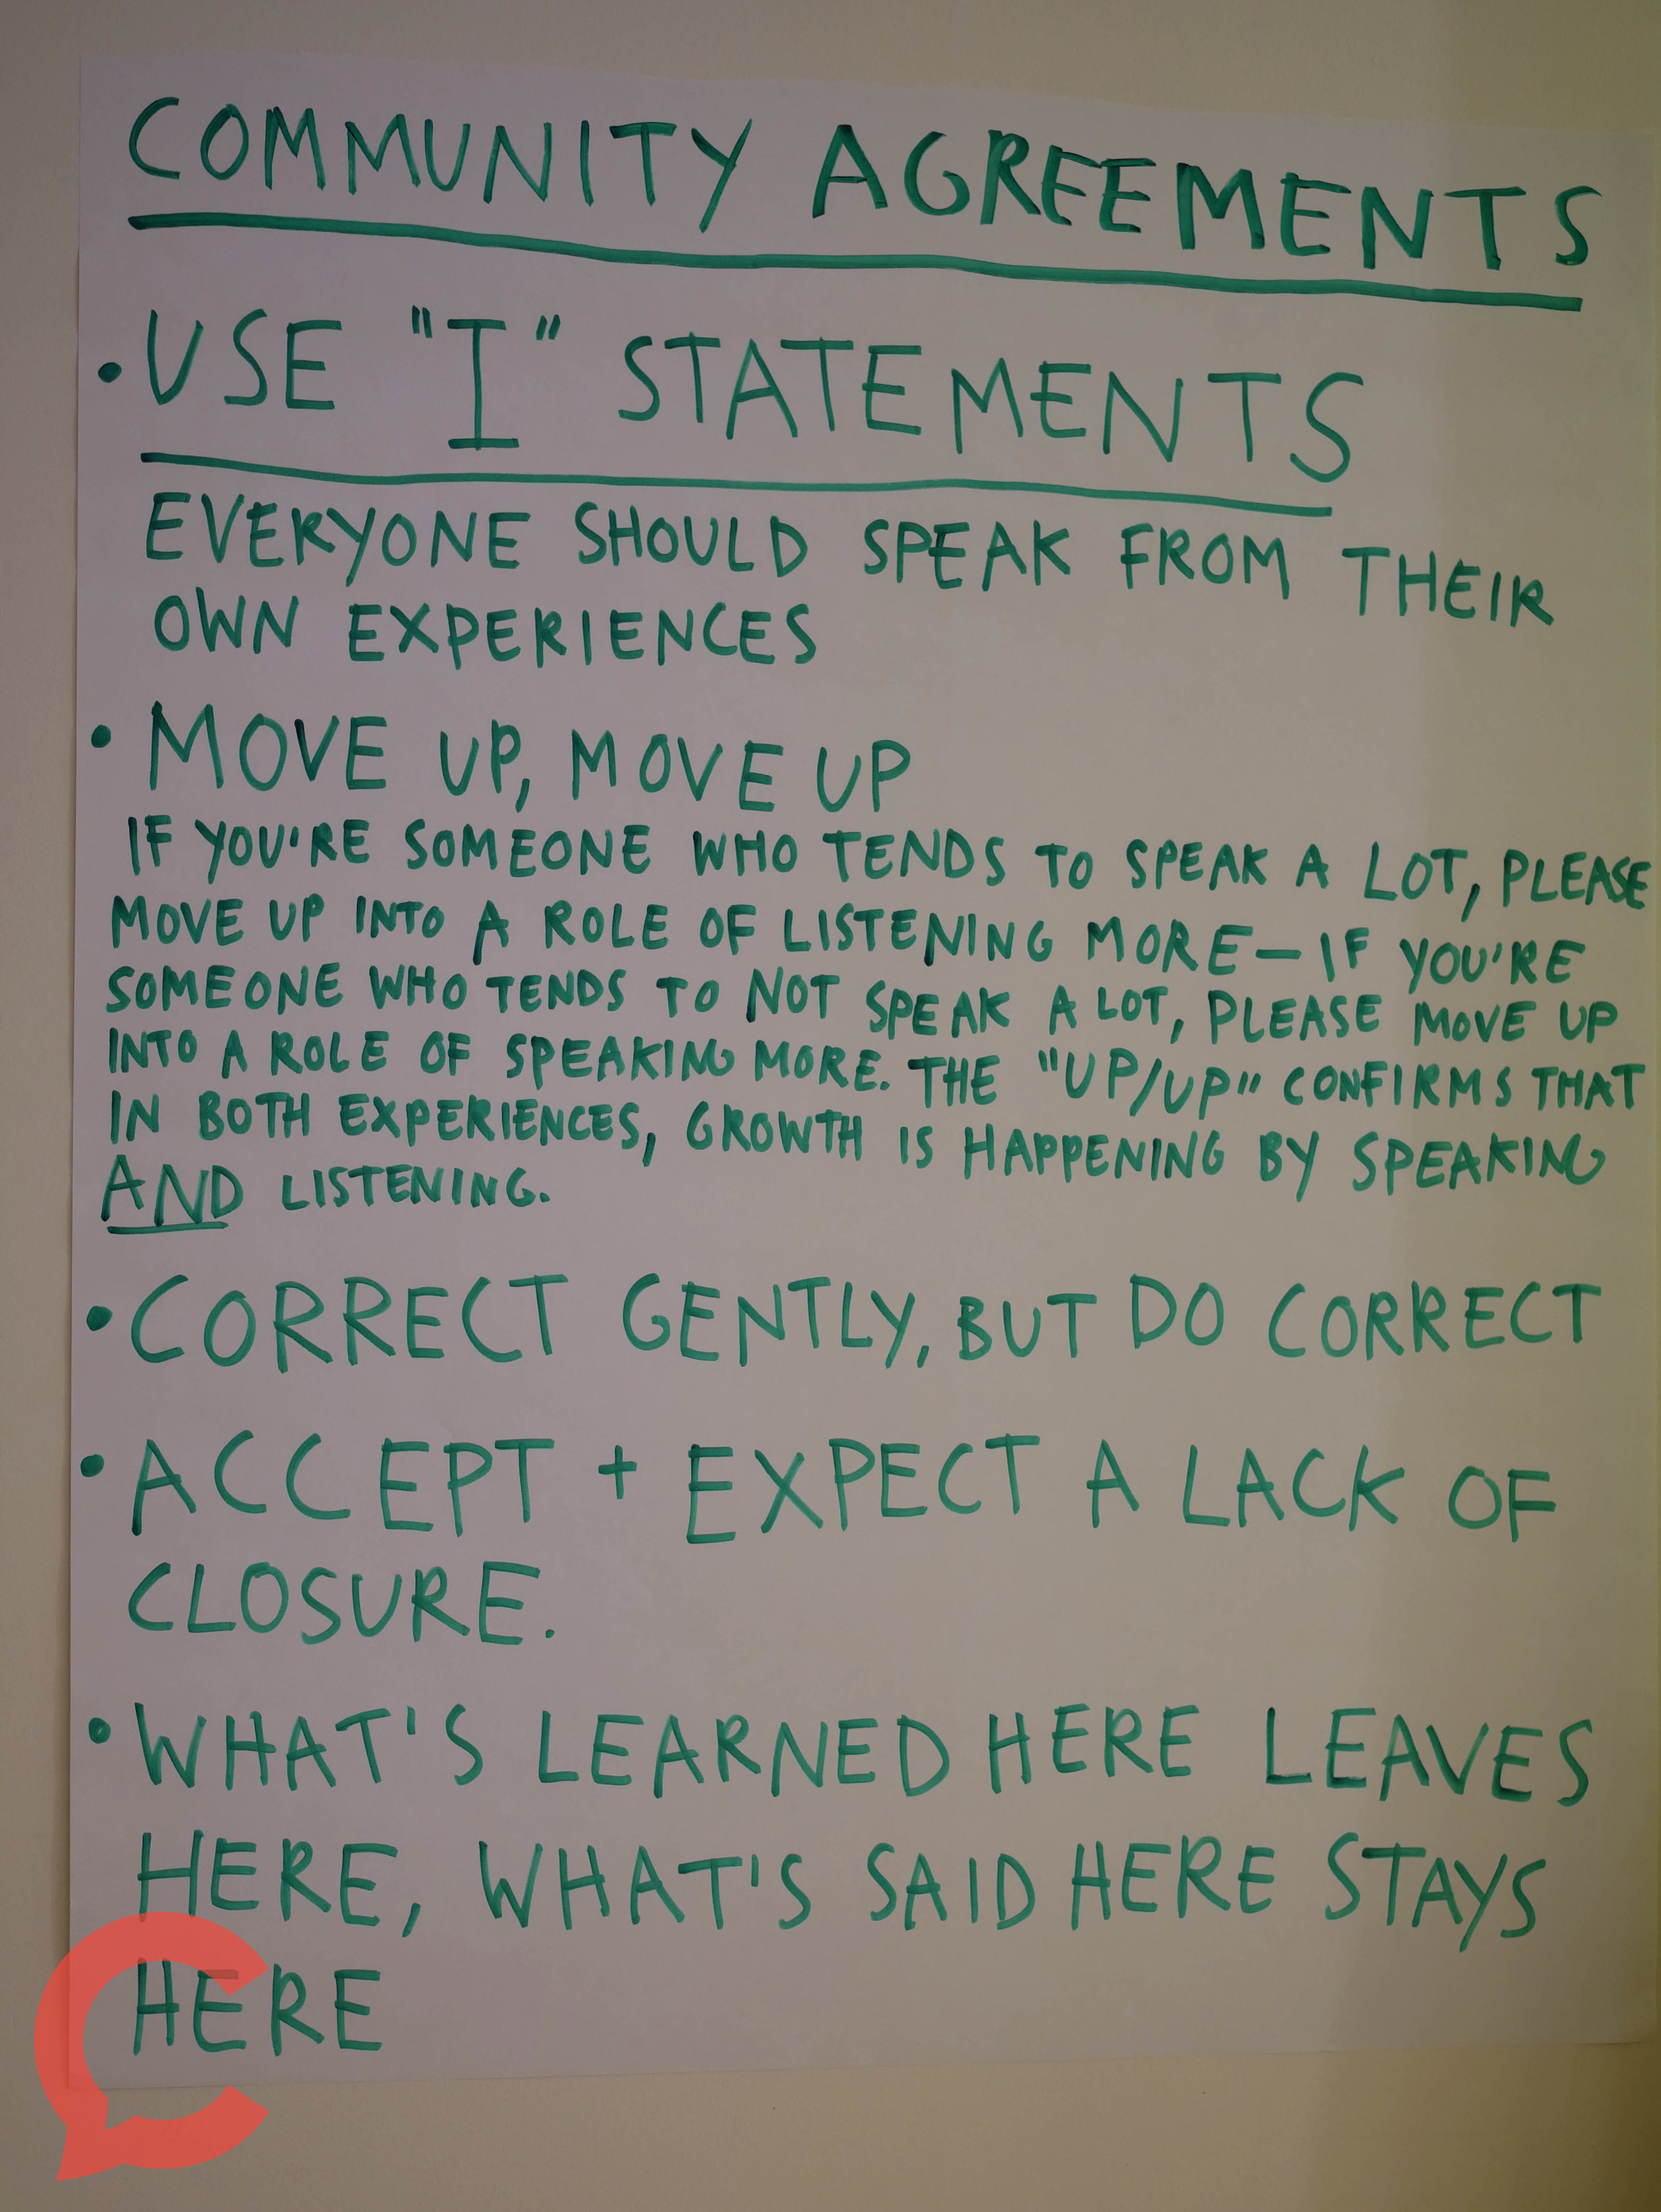 COMMUNITY AGREEMENTS
• USE "I" STATEMENTS
EVERYONE SHOULD SPEAK FROM THEIR
OWN EXPERIENCES
• MOVE UP, MOVE UP
IF YOU'RE SOMEONE WHO TENDS TO SPEAK A LOT, PLEASE
MOVE UP INTO A ROLE OF LISTENING MORE – IF YOU'RE
SOMEONE WHO TENDS TO NOT SPEAK A LOT, PLEASE MOVE UP
INTO A ROLE OF SPEAKING MORE. THE "UP/UP" CONFIRMS THAT
IN BOTH EXPERIENCES, GROWTH IS HAPPENING BY SPEAKING
AND LISTENING.
• CORRECT GENTLY, BUT DO CORRECT
• ACCEPT + EXPECT A LACK OF
CLOSURE.
• WHAT'S LEARNED HERE LEAVES
HERE, WHAT'S SAID HERE STAYS
HERE